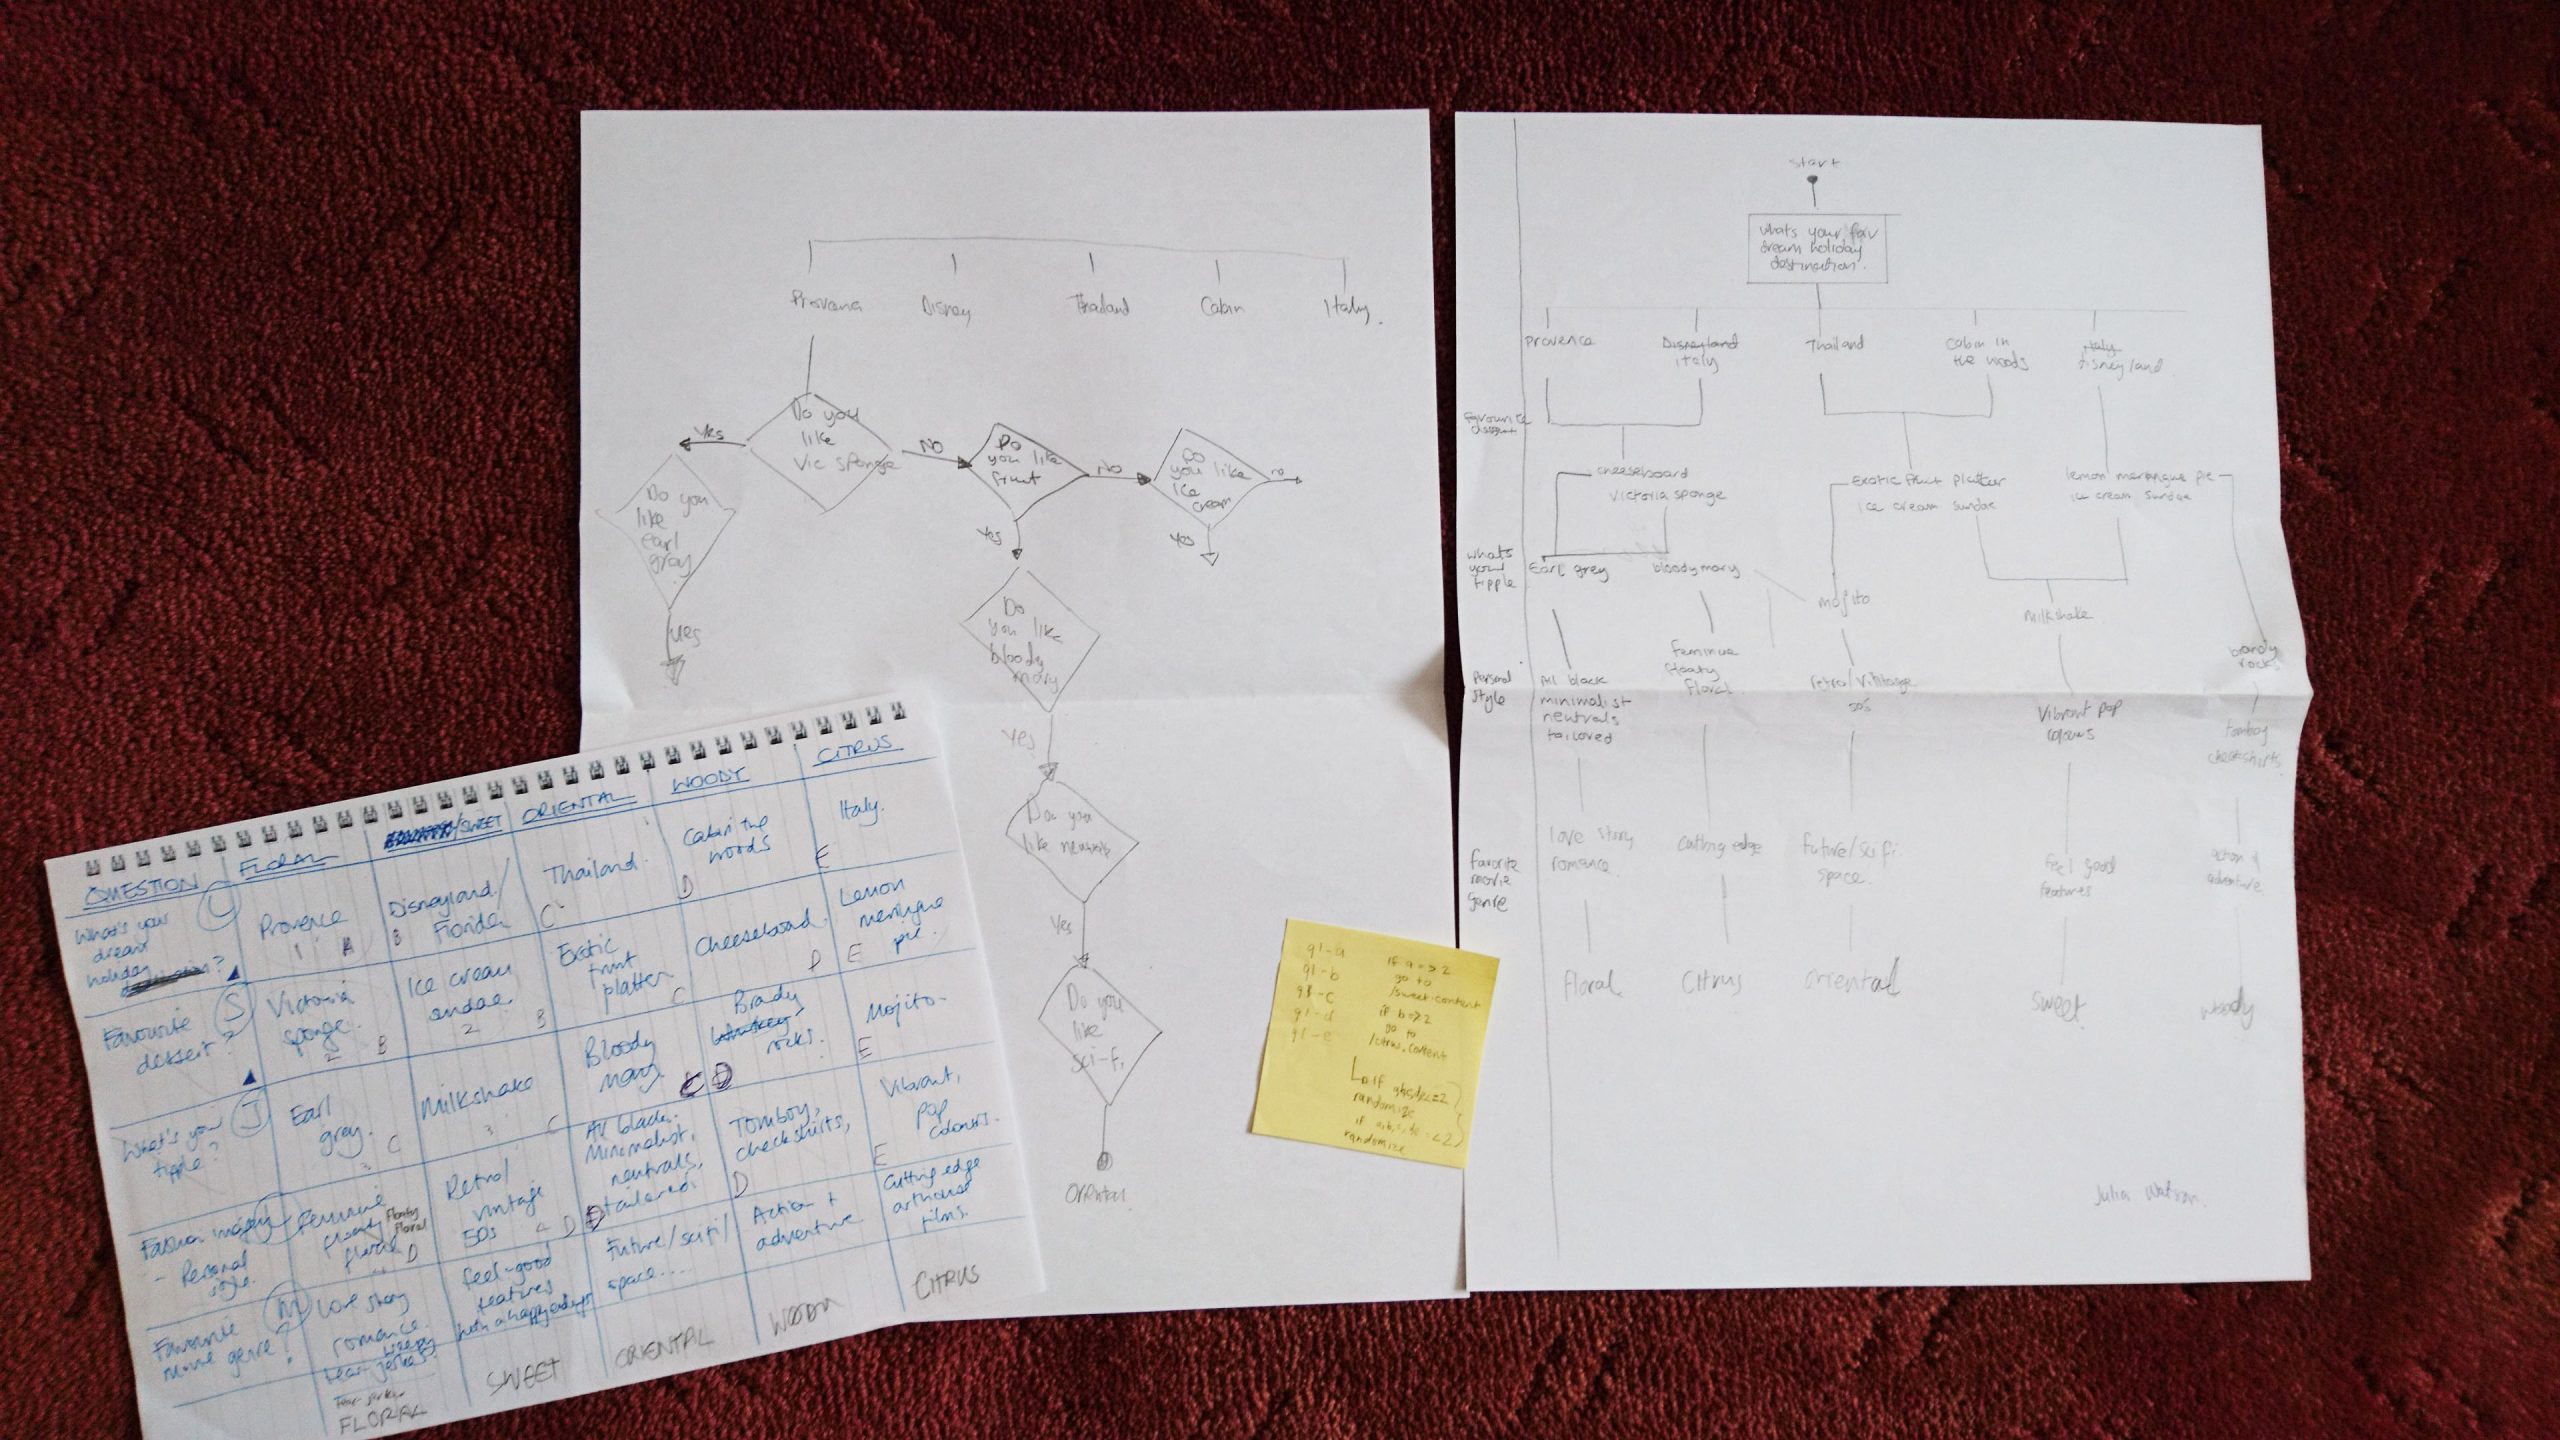 Disney
Thailand
Cabin
Italy.
Do you
like
Vic sponge
Yes
No
Do
you like
fruit
No
Do
you like
ice
cream
no
Do you
like
earl
gray
yes
Yes
Yes
Do
you like
bloody
mary
yes
Do you
like neutrals
Yes
Do you
like
sci-fi
Oriental
start
whats your fav
dream holiday
destination.
Provence
Disneyland
italy
Thailand
Cabin in
the woods
Italy
disneyland
favourite
dessert
cheeseboard
victoria sponge
Exotic fruit platter
ice cream sundae
lemon merengue pie
ice cream sundae
whats
your
tipple
Earl grey
bloody mary
mojito
milkshake
brandy
rocks
Personal
Style
All black
minimalist
neutrals
tailored
feminine
floaty
floral
retro/vintage
50s
Vibrant pop
colours
tomboy
checkshirts
favorite
movie
genre
love story
romance
cutting edge
future/sci fi
space
feel good
features
action &
adventure
floral
Citrus
oriental
sweet
woody
Julia Watson
QUESTION
FLORAL
/SWEET
ORIENTAL
WOODY
CITRUS
What's your
dream
holiday
?
L
Provence
1 A
Disneyland/
B Florida
Thailand.
C
Cabin the
woods
D
Italy.
E
Favourite
dessert?
S
Victoria
sponge.
2 B
Ice cream
sundae.
2 B
Exotic
fruit
platter
C
Cheeseboard.
D
Lemon
meringue
pie.
E
What's your
tipple?
J
Earl
grey.
3 C
Milkshake
3 C
Bloody
mary
Brady
whiskey
rocks.
Mojito.
E
- Personal
style.
feminine
floaty
floral
Floaty
floral
D
Retro/
vintage
50s
4 D
All black.
Minimalist,
neutrals,
tailored.
Tomboy,
check shirts,
D
Vibrant,
pop
colours.
E
Favourite
movie genre?
M
Love story
romance
weepy
tear-jerker
Tear-jerker
feel-good
features
with a happy endings
Future/scifi/
space....
Action +
adventure
Cutting edge
arthouse
films.
FLORAL
SWEET
ORIENTAL
WOODY
CITRUS
q1-a
q1-b
q1-c
q1-d
q1-e
if a => 2
go to
/sweet-content
if b => 2
go to
/citrus.content
randomize
randomize